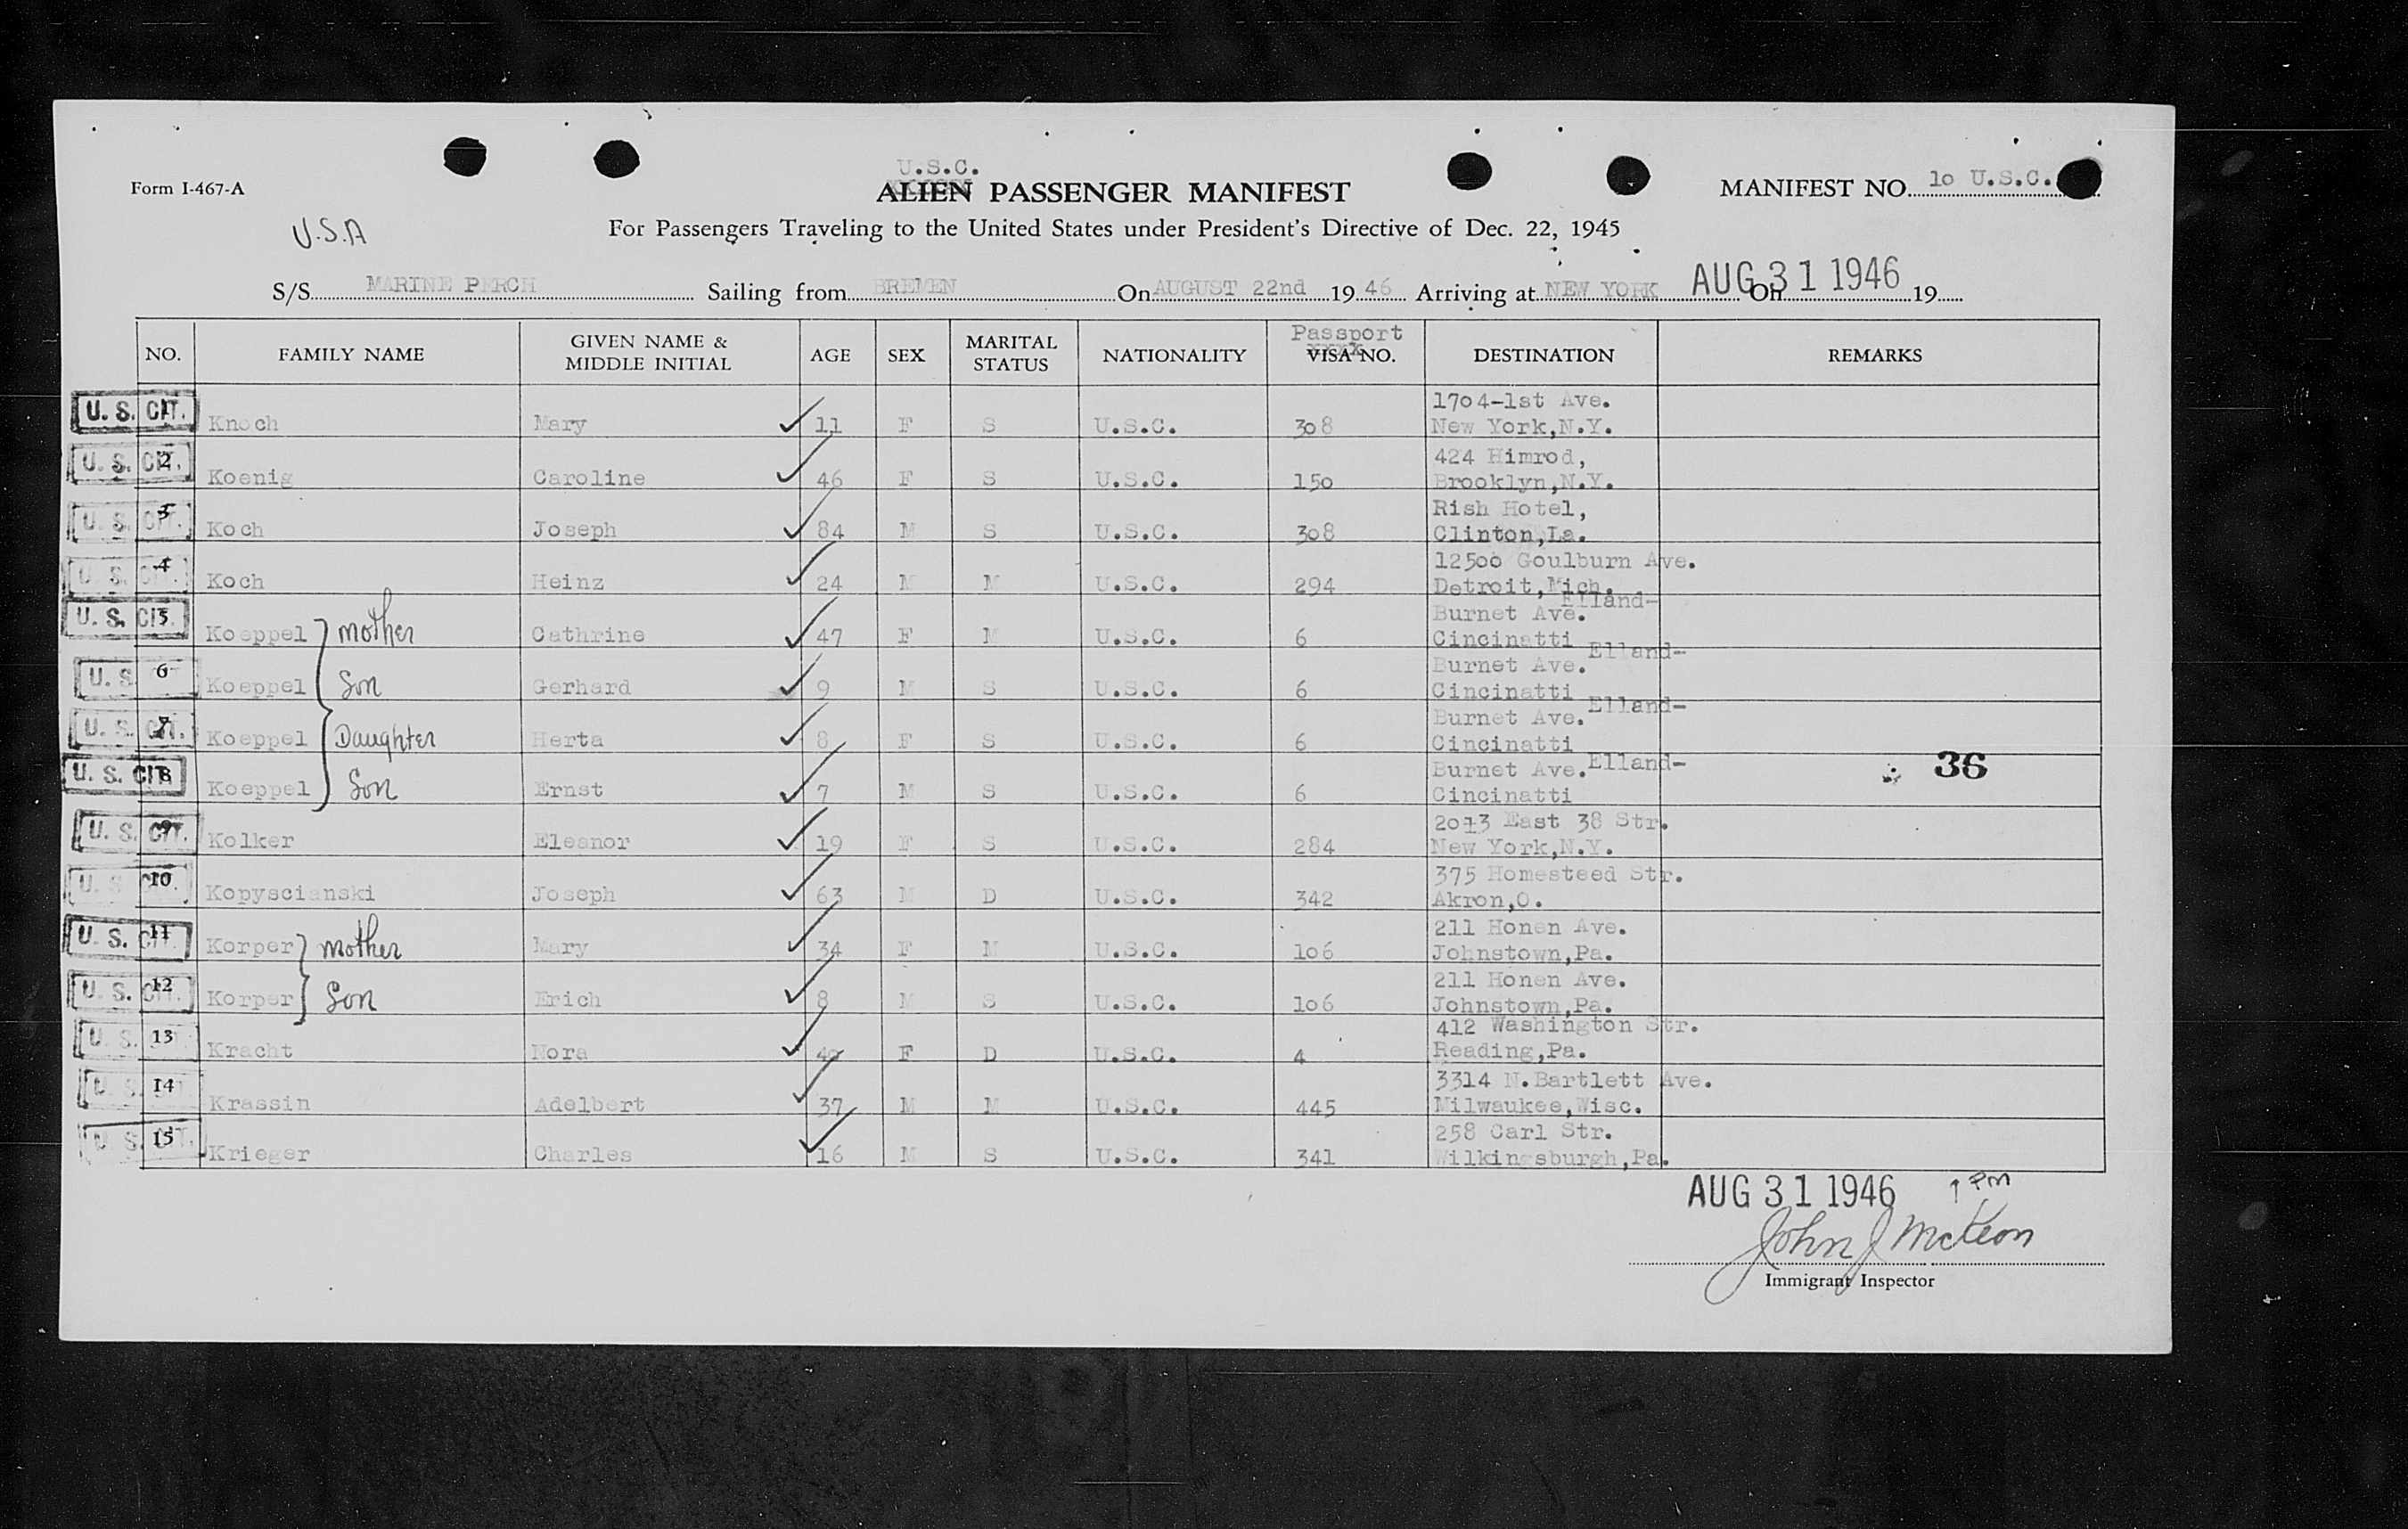 U.S.C.
Form I-467-A ALIEN PASSENGER MANIFEST MANIFEST NO. 1o U.S.C.
U.S.A For Passengers Traveling to the United States under President's Directive of Dec. 22, 1945
S/S MARINE PERCH Sailing from BREMEN On AUGUST 22nd 19 46 Arriving at NEW YORK On AUG 31 1946 19
NO. FAMILY NAME GIVEN NAME & MIDDLE INITIAL AGE SEX MARITAL STATUS NATIONALITY Passport VISA NO. DESTINATION REMARKS
U. S. CIT. 1 Knoch Mary 11 F S U.S.C. 3o8 17o4-1st Ave. New York,N.Y.
U. S. CIT. 2 Koenig Caroline 46 F S U.S.C. 15o 424 Himrod, Brooklyn,N.Y.
U. S. CIT. 3 Koch Joseph 84 M S U.S.C. 3o8 Rish Hotel, Clinton,La.
U. S. CIT. 4 Koch Heinz 24 M M U.S.C. 294 125oo Goulburn Ave. Detroit,Mich.
U. S. CIT. 5 Koeppel mother Cathrine 47 F M U.S.C. 6 Elland- Burnet Ave. Cincinatti
U. S. 6 Koeppel Son Gerhard 9 M S U.S.C. 6 Elland- Burnet Ave. Cincinatti
U. S. CIT. 7 Koeppel Daughter Herta 8 F S U.S.C. 6 Elland- Burnet Ave. Cincinatti
U. S. CIT. 8 Koeppel Son Ernst 7 M S U.S.C. 6 Elland- Burnet Ave. Cincinatti 36
U. S. CIT. 9 Kolker Eleanor 19 F S U.S.C. 284 2o13 East 38 Str. New York,N.Y.
U. S. CIT. 10 Kopyscianski Joseph 63 M D U.S.C. 342 375 Homesteed Str. Akron,O.
U. S. CIT. 11 Korper mother Mary 34 F M U.S.C. 1o6 211 Honen Ave. Johnstown,Pa.
U. S. CIT. 12 Korper Son Erich 8 M S U.S.C. 1o6 211 Honen Ave. Johnstown,Pa.
U. S. 13 Kracht Nora F D U.S.C. 4 412 Washington Str. Reading,Pa.
U. S. 14 Krassin Adelbert 37 M M U.S.C. 445 3314 N.Bartlett Ave. Milwaukee,Wisc.
U. S. CIT. 15 Krieger Charles 16 M S U.S.C. 341 258 Carl Str. Wilkingsburgh,Pa.
AUG 31 1946 1 PM
John J McKeon
Immigrant Inspector